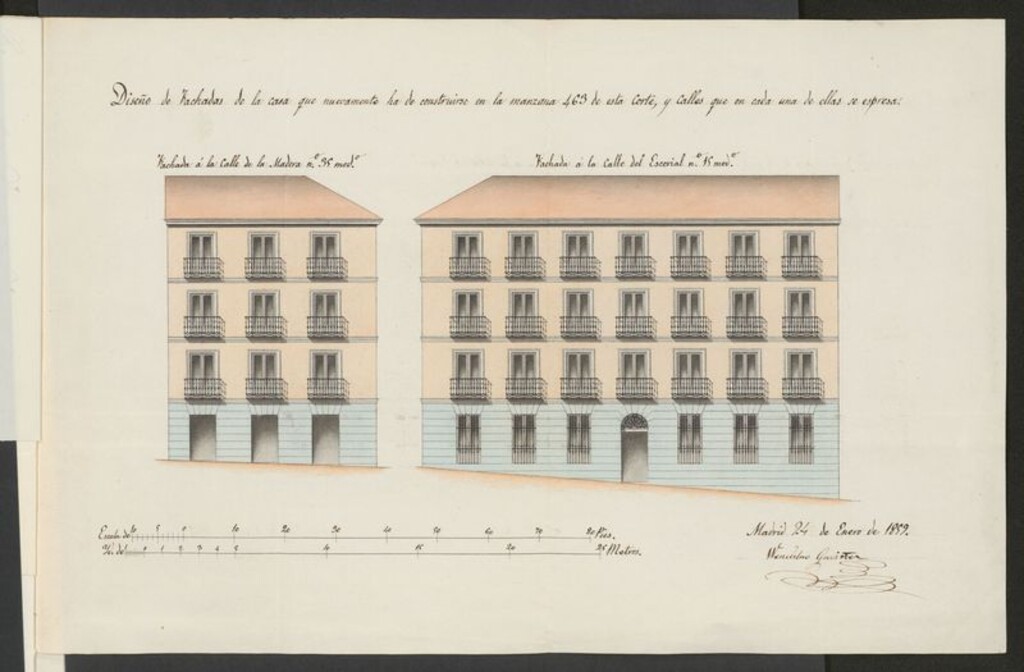 Diseño de Fachadas de la casa que nuevamente ha de construirse en la manzana 463 de esta Corte, y Calles que en cada una de ellas se espresa:
Fachada á la Calle de la Madera n.º 35 mod.º
Fachada á la Calle del Escorial n.º 15 mod.º
Escala de 10 5 0 10 20 30 40 50 60 70 80 Pies.
Yd. de 0 1 2 3 4 5 10 15 20 25 Metros.
Madrid 24 de Enero de 1859.
Wenceslao Gaviña